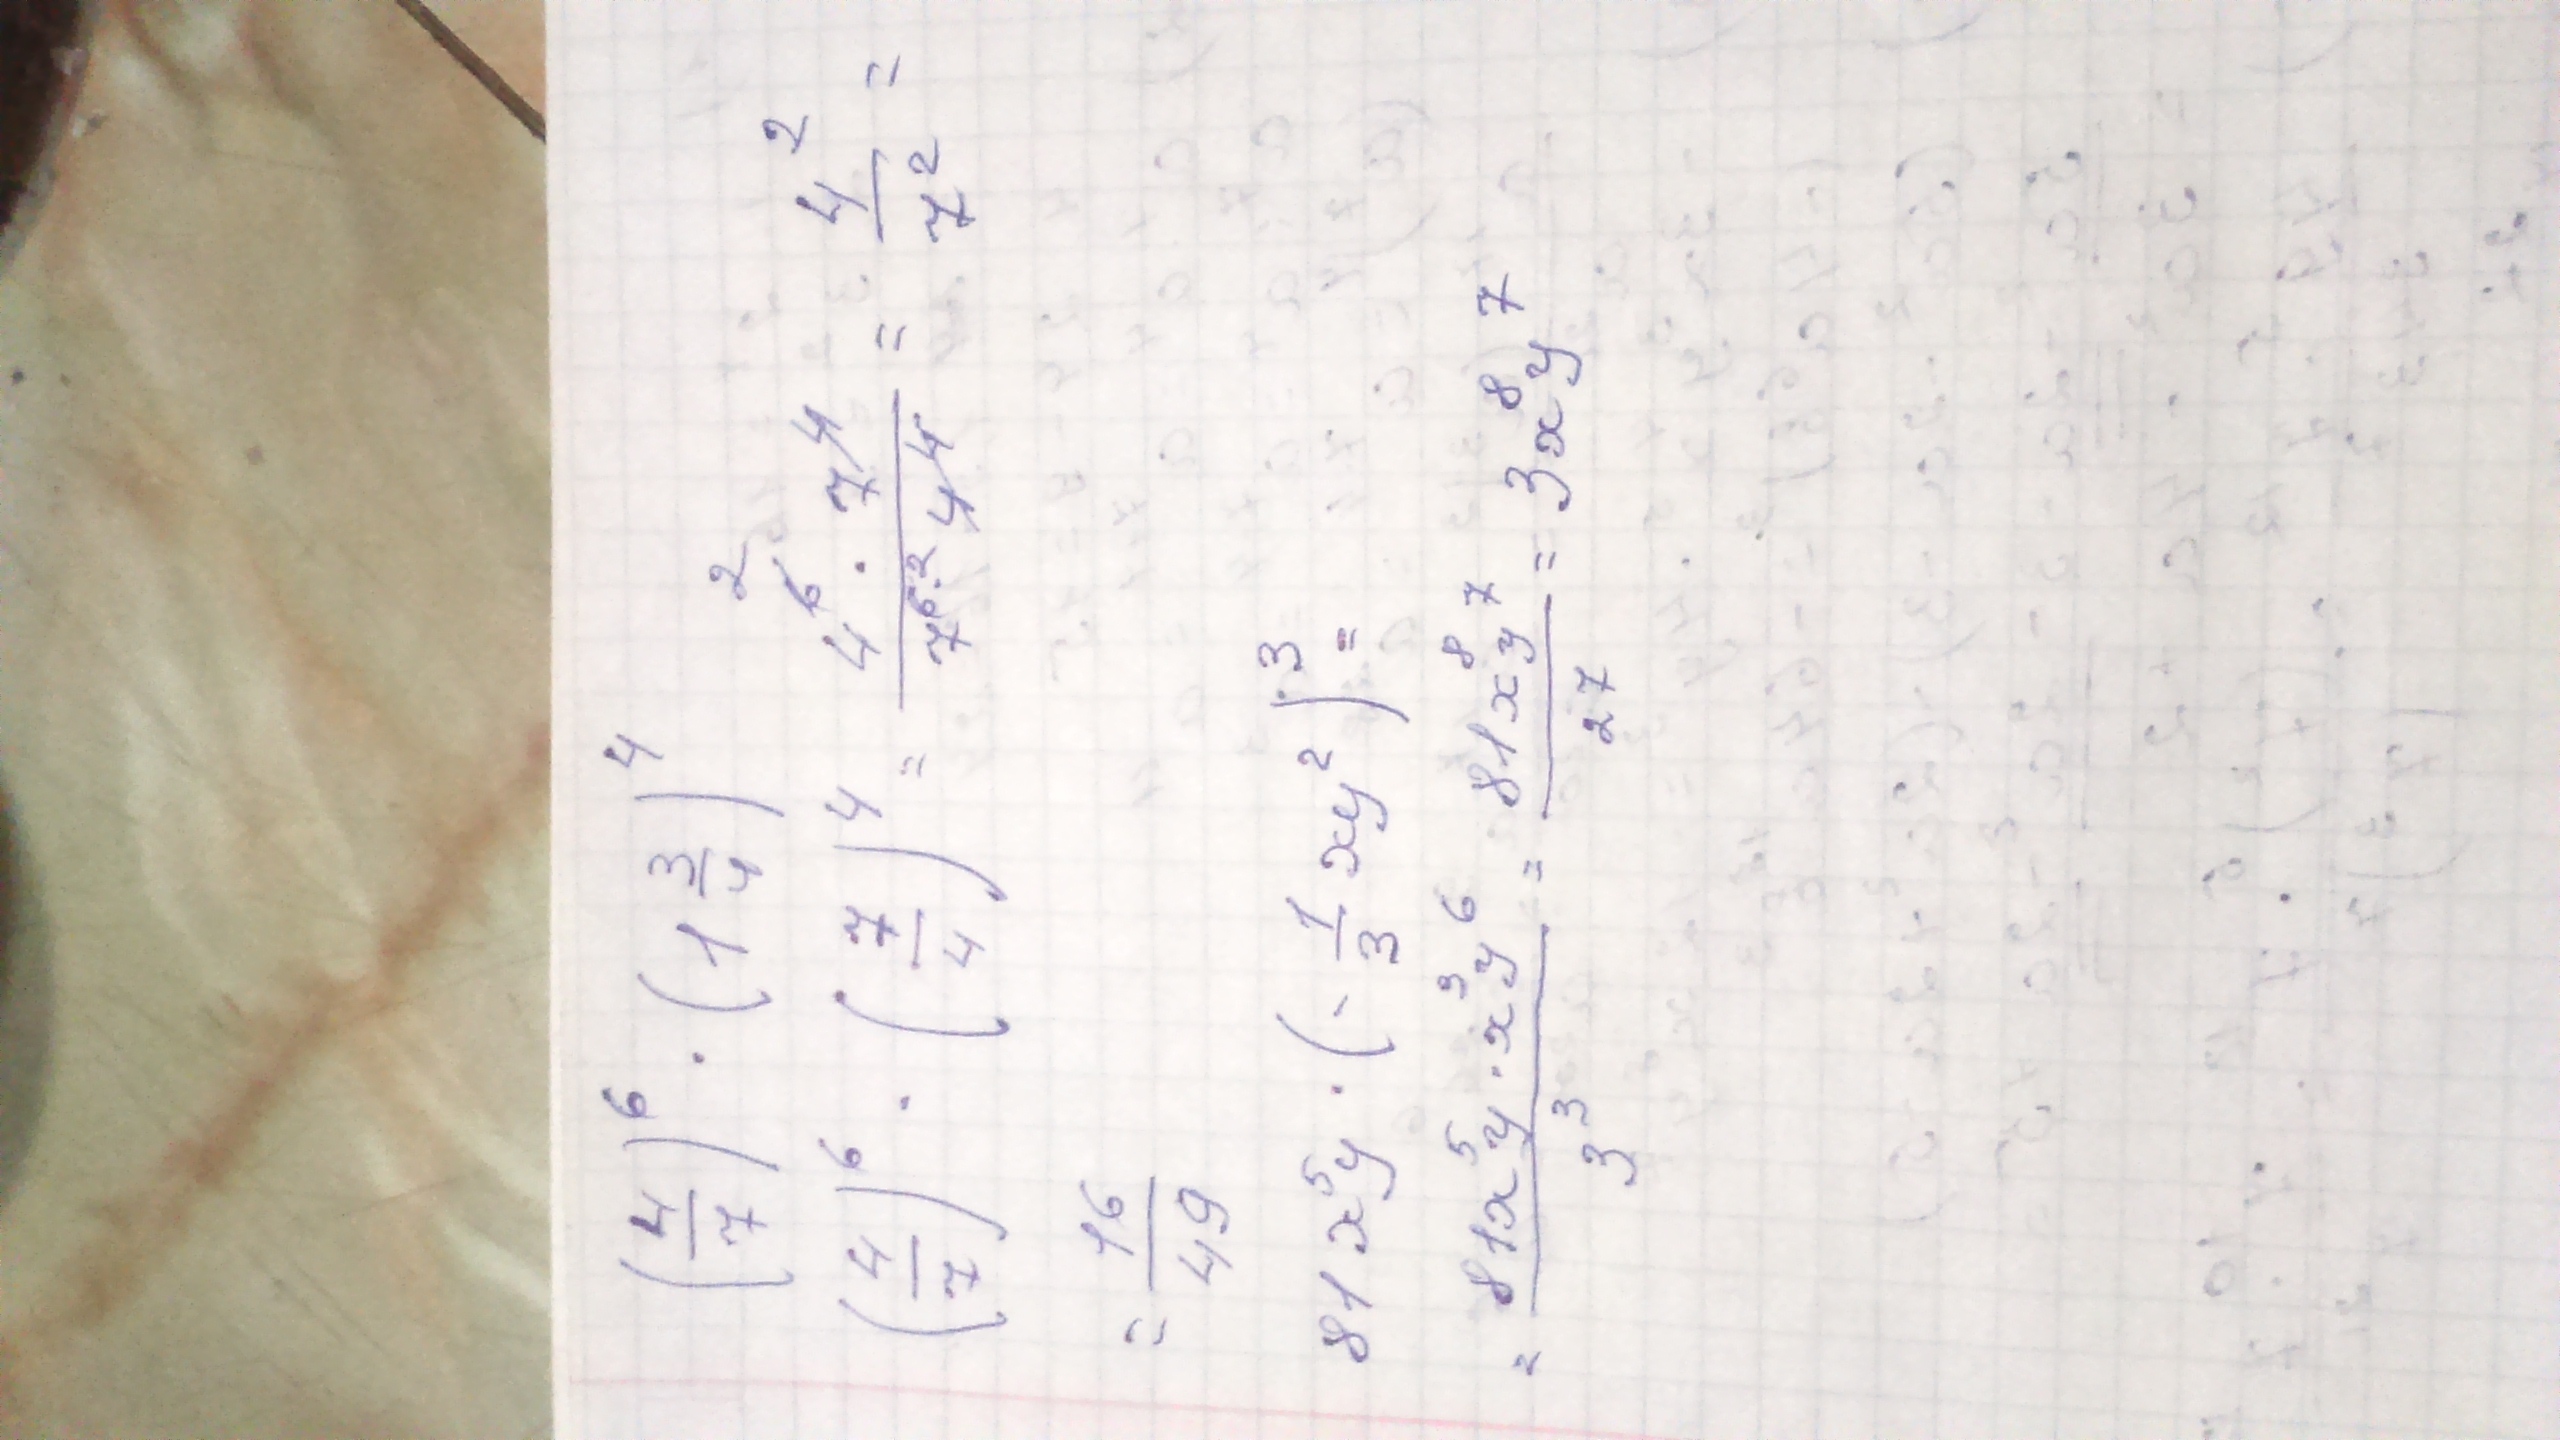 (4/7)⁶ · (1 3/4)⁴
(4/7)⁶ · (7/4)⁴ = 4⁶ ² · 7⁴ / 7⁶ · ² 4⁴ = 4²/7² =
= 16/49
81x⁵y · (- 1/3 xy²)³ =
= 81x⁵y · x³y⁶ / 3³ = 81x⁸y⁷ / 27 = 3x⁸y⁷